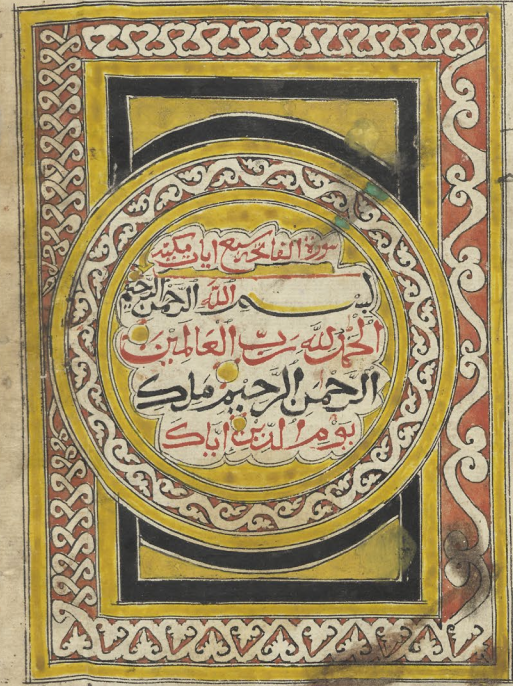 سورة الفاتحة سبع ايات مكية
بسم الله الرحمن الرحيم
الحمد لله رب العالمين
الرحمن الرحيم ملك
يوم الدين اياك